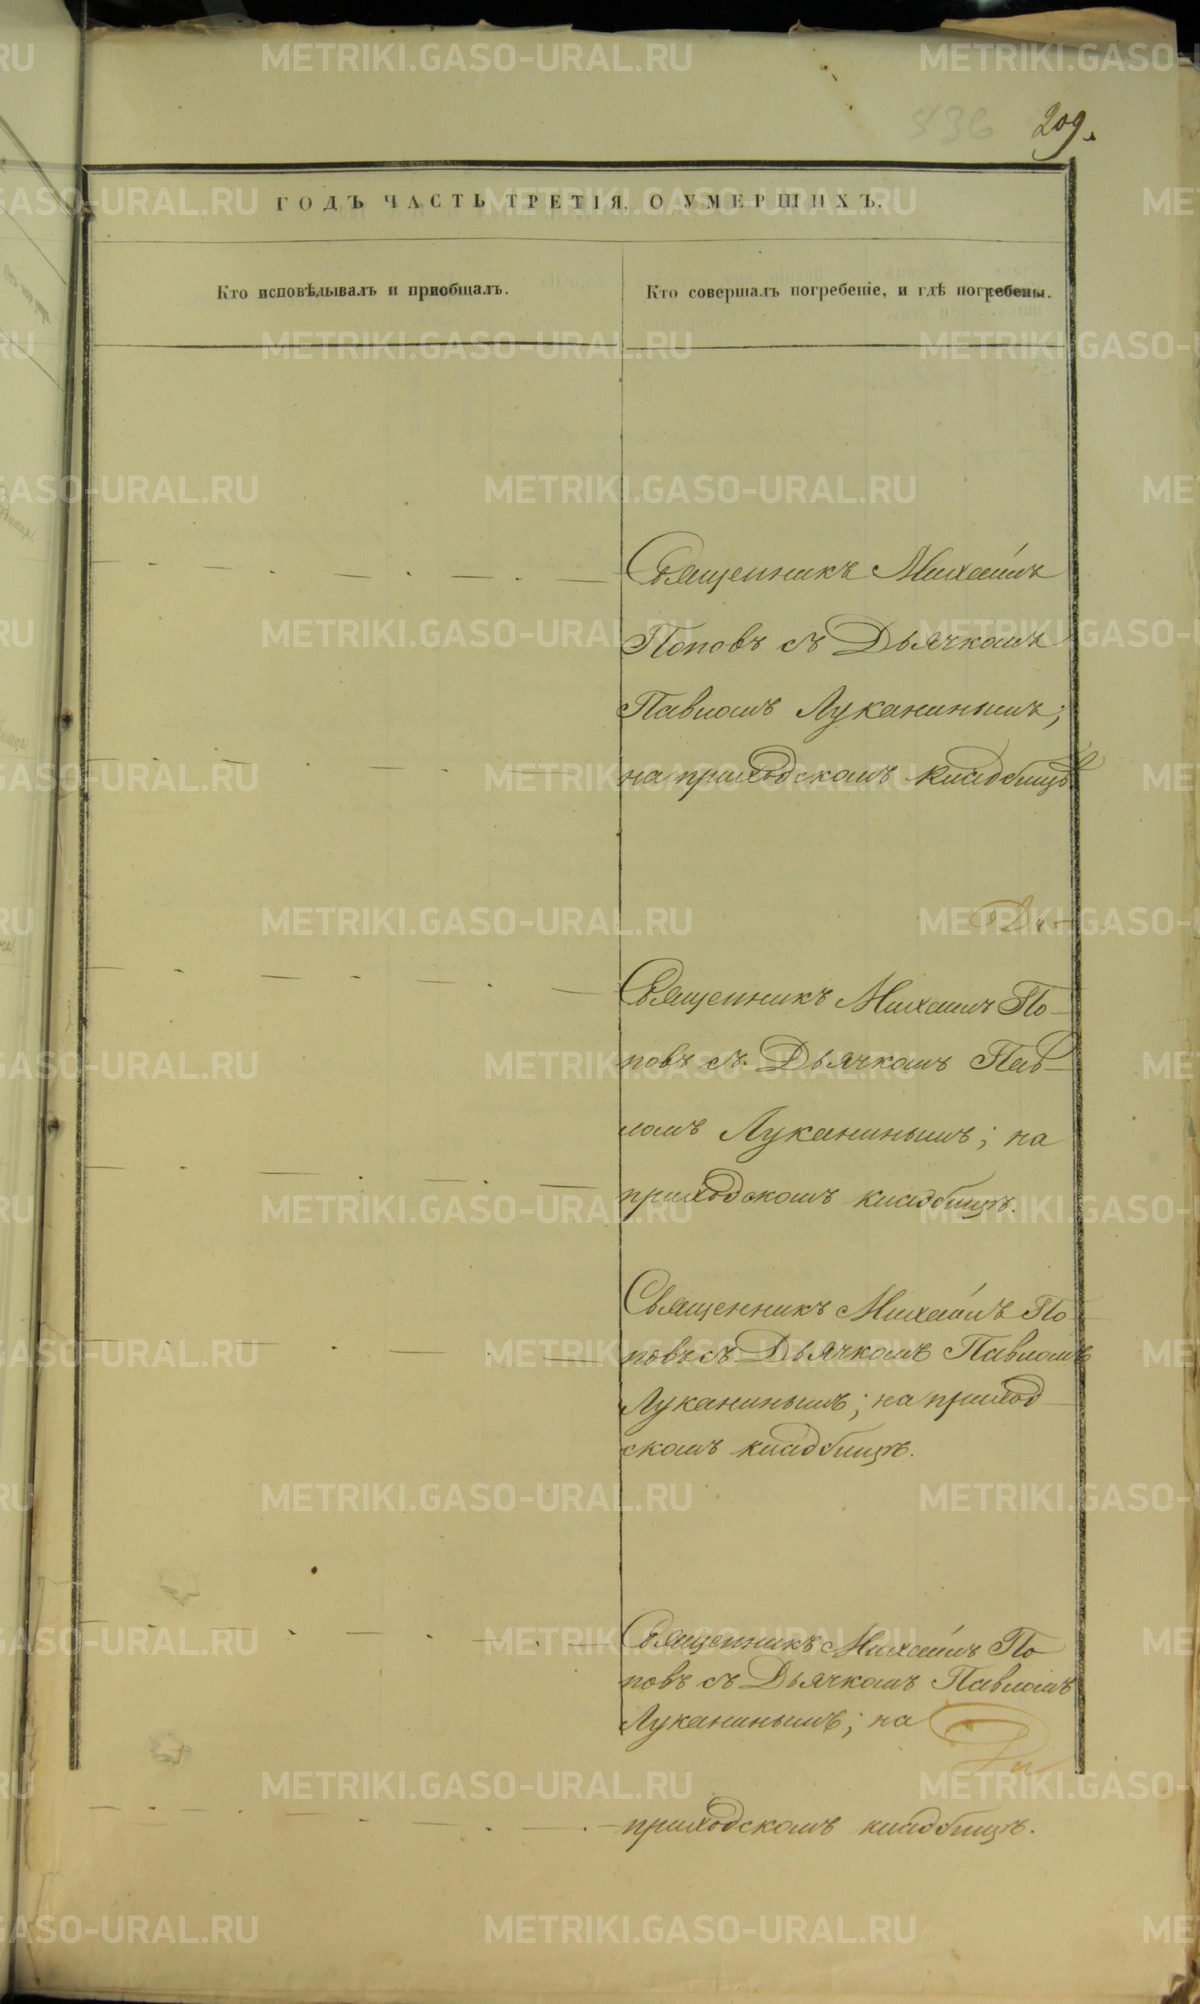 436
209.
ГОДЪ ЧАСТЬ ТРЕТІЯ, О УМЕРШИХЪ.
Кто исповѣдывалъ и пріобщалъ.
Кто совершалъ погребеніе, и гдѣ погребены.
Священникъ Михаилъ
Поповъ съ Дьячкомъ
Павломъ Луканинымъ;
на приходскомъ кладбищѣ
Священникъ Михаилъ По-
повъ съ Дьячкомъ Пав-
ломъ Луканинымъ; на
приходскомъ кладбищѣ.
Священникъ Михаилъ По
повъ съ Дьячкомъ Павломъ
Луканинымъ; на приход-
скомъ кладбищѣ.
Священникъ Михаилъ По
повъ съ Дьячкомъ Павломъ
Луканинымъ; на
приходскомъ кладбищѣ.
METRIKI.GASO-URAL.RU